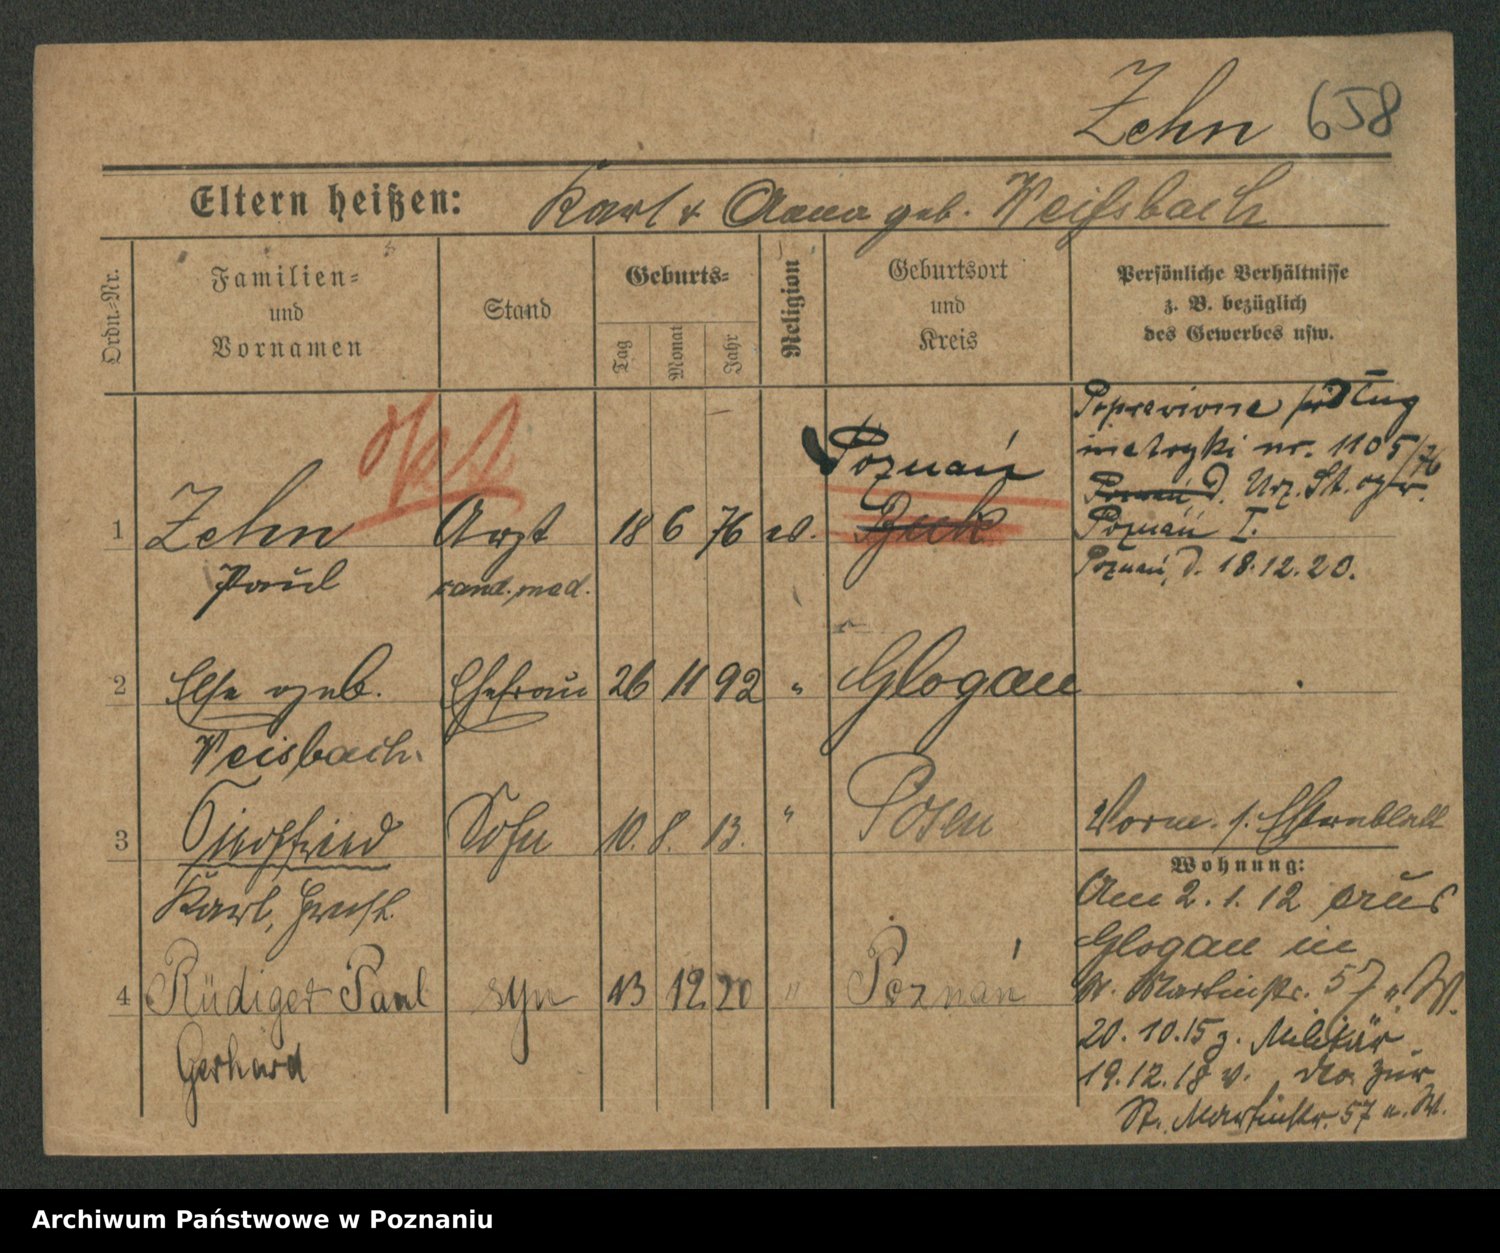 Zehn 658
Eltern heißen: Karl & Anna geb. Weißbach
Ordn.-Nr.
Familien-
und
Vornamen
Stand
Geburts-
Tag
Monat
Jahr
Religion
Geburtsort
und
Kreis
Persönliche Verhältnisse
z. B. bezüglich
des Gewerbes usw.
Poprawione podług
metryki nr. 1105/76
Poznań d. Urz. St. cyw.
Poznań I.
Poznań, d. 18.12.20.
Poznań
1 Zehn Arzt 18 6 76 ev.
Paul cand. med.
2 Else geb. Ehefrau 26 11 92 " Glogau
Weisbach.
3 Siegfried Sohn 10. 8. 13. " Posen
Karl, Ernst.
Vorm. s. Elternblatt
Wohnung:
Am 2. 1. 12 aus
Glogau in
St. Martinstr. 57 u. W.
20. 10. 15 z. Militär
19. 12. 18 v. dto zur
St. Martinstr. 57 u. W.
4 Rüdiger Paul syn 13 12. 20 " Poznań
Gerhard
Archiwum Państwowe w Poznaniu